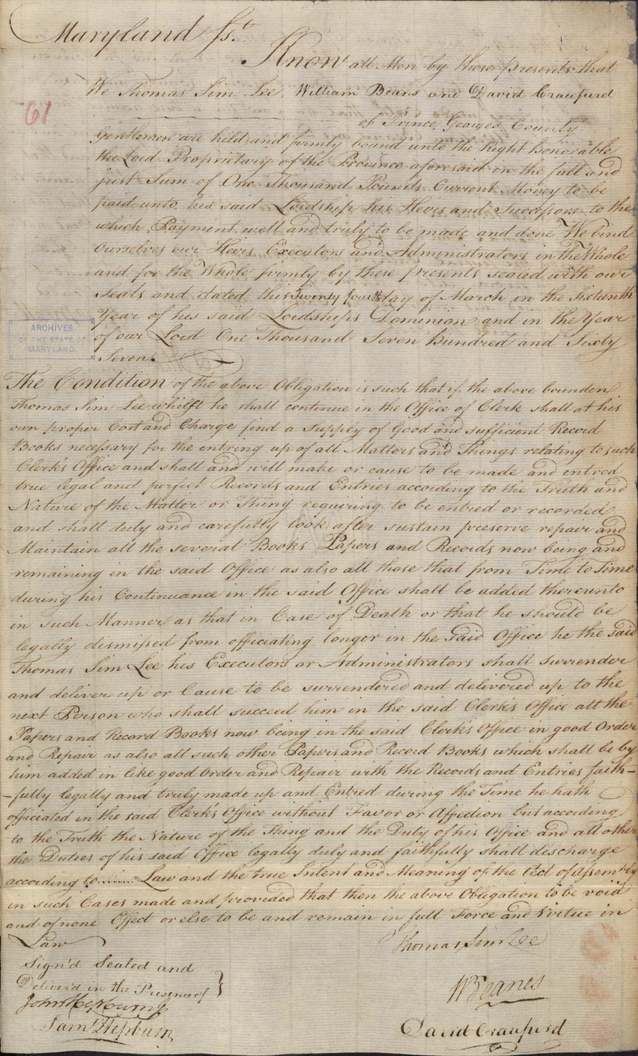 Maryland Ss.t
Know all Men by these Presents that
We Thomas Sim Lee William Beans and David Craufurd
61
of Prince Georges County
Gentlemen are held and firmly bound unto the Right Honorable
the Lord Proprietary of the Province aforesaid in the full and
just Sum of One Thousand Pounds Current Money to be
paid unto his said Lordship his Heirs and Successors to the
which Payment well and truly to be made and done We bind
Ourselves our Heirs Executors and Administrators in the Whole
and for the Whole firmly by these presents sealed with our
Seals and dated this Twenty fourth day of March in the Sixteenth
Year of his said Lordships Dominion and in the Year
of our Lord One Thousand Seven Hundred and Sixty
Seven.
ARCHIVES
OF THE STATE OF
MARYLAND
The Condition of the above Obligation is such that if the above bounden
Thomas Sim Lee whilst he shall continue in the Office of Clerk shall at his
own proper Cost and Charge find a Supply of Good and sufficient Record
Books necessary for the entring up of all Matters and Things relating to such
Clerk's Office and shall and will make or cause to be made and entred
true legal and perfect Records and Entries according to the Truth and
Nature of the Matter or Thing requiring to be entred or recorded
and shall duly and carefully look after sustain preserve repair and
Maintain all the several Books Papers and Records now being and
remaining in the said Office as also all those that from Time to Time
during his Continuance in the said Office shall be added thereunto
in such Manner as that in Case of Death or that he should be
legally dismissed from officiating longer in the said Office he the said
Thomas Sim Lee his Executors or Administrators shall surrender
and deliver up or Cause to be surrendered and delivered up to the
next Person who shall succeed him in the said Clerk's Office all the
Papers and Record Books now being in the said Clerk's Office in good Order
and Repair as also all such other Papers and Record Books which shall be by
him added in like good Order and Repair with the Records and Entries faith-
-fully legally and truly made up and Entred during the Time he hath
officiated in the said Clerk's Office without Favor or Affection but according
to the Truth the Nature of the Thing and the Duty of his Office and all other
the Duties of his said Office legally duly and faithfully shall discharge
according to Law and the true Intent and Meaning of the Act of Assembly
in such Cases made and provided that then the above Obligation to be void
and of none Effect or else to be and remain in full Force and Virtue in
Law
Thomas Sim Lee
Sign'd Sealed and
Deliver'd in the Presence of
W Beanes
John Hepburn
Sam.l Hepburn
David Craufurd